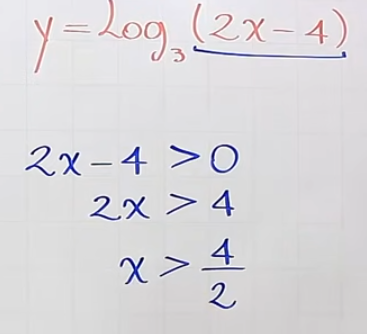 y = Log₃ (2x - 4)
2x - 4 > 0
2x > 4
x > 4/2